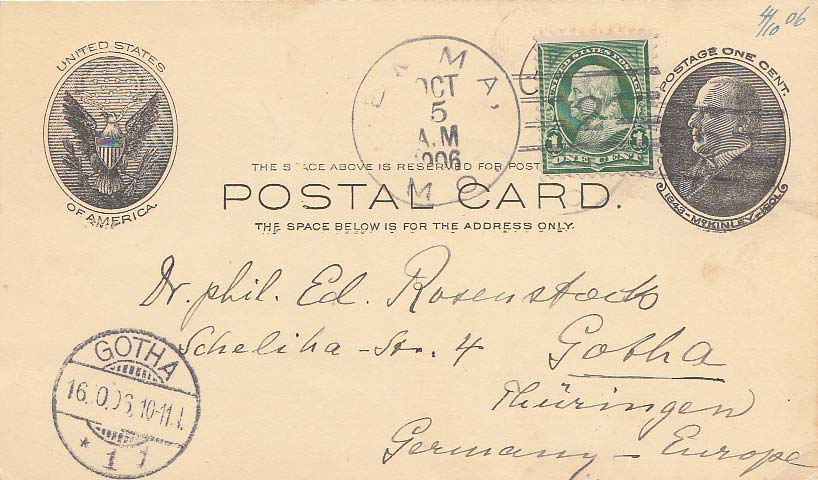 4/10 06
UNITED STATES
OF AMERICA.
MA,
OCT
5
A.M
1906
MO
1 1
ONE CENT
2
POSTAGE ONE CENT.
1843-McKINLEY-1901
THE SPACE ABOVE IS RESERVED FOR POST
POSTAL CARD.
THE SPACE BELOW IS FOR THE ADDRESS ONLY.
Dr. phil. Ed. Rosenstock
Scheliha-Str. 4 Gotha
Thüringen
Germany - Europe
GOTHA
16.0.06.10-11
* 1